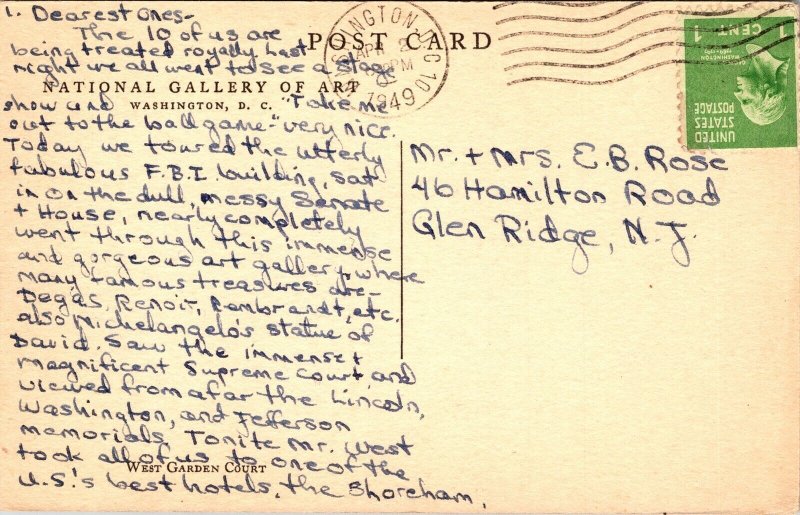 1. Dearest Ones-
The 10 of us are
being treated royally. Last
night we all went to see a stage
show and "Take me
out to the ballgame" very nice.
Today we toured the utterly
fabulous F.B.I building, sat
in on the dull, messy Senate
+ House, nearly completely
went through this immense
and gorgeous art gallery, where
many famous treasures are-
Degas, Renoir, Rembrandt, etc.
also Michelangelo's statue of
David. Saw the immense +
magnificent Supreme Court, and
viewed from afar the Lincoln,
Washington, and Jefferson
memorials. Tonite Mr. West
took all of us to one of the
U.S.'s best hotels, the Shoreham,
POST CARD
NATIONAL GALLERY OF ART
WASHINGTON, D. C.
WEST GARDEN COURT
INGTON, D.C. 10
APR 2
PM
1949
1 CENT 1
UNITED
STATES
POSTAGE
WASHINGTON
Mr. + Mrs. E.B. Rose
46 Hamilton Road
Glen Ridge, N.J.